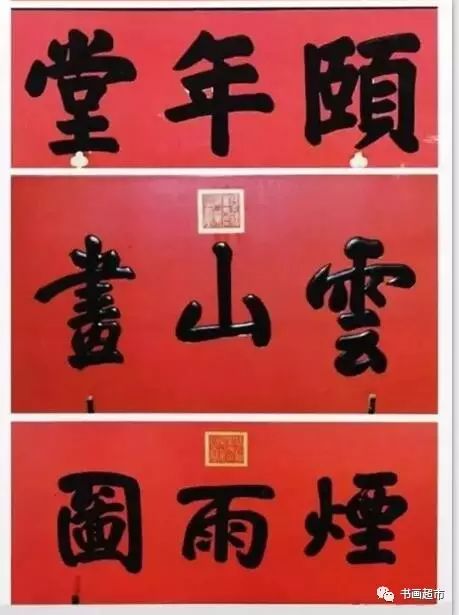 頤年堂
雲山畫
煙雨圖
书画超市